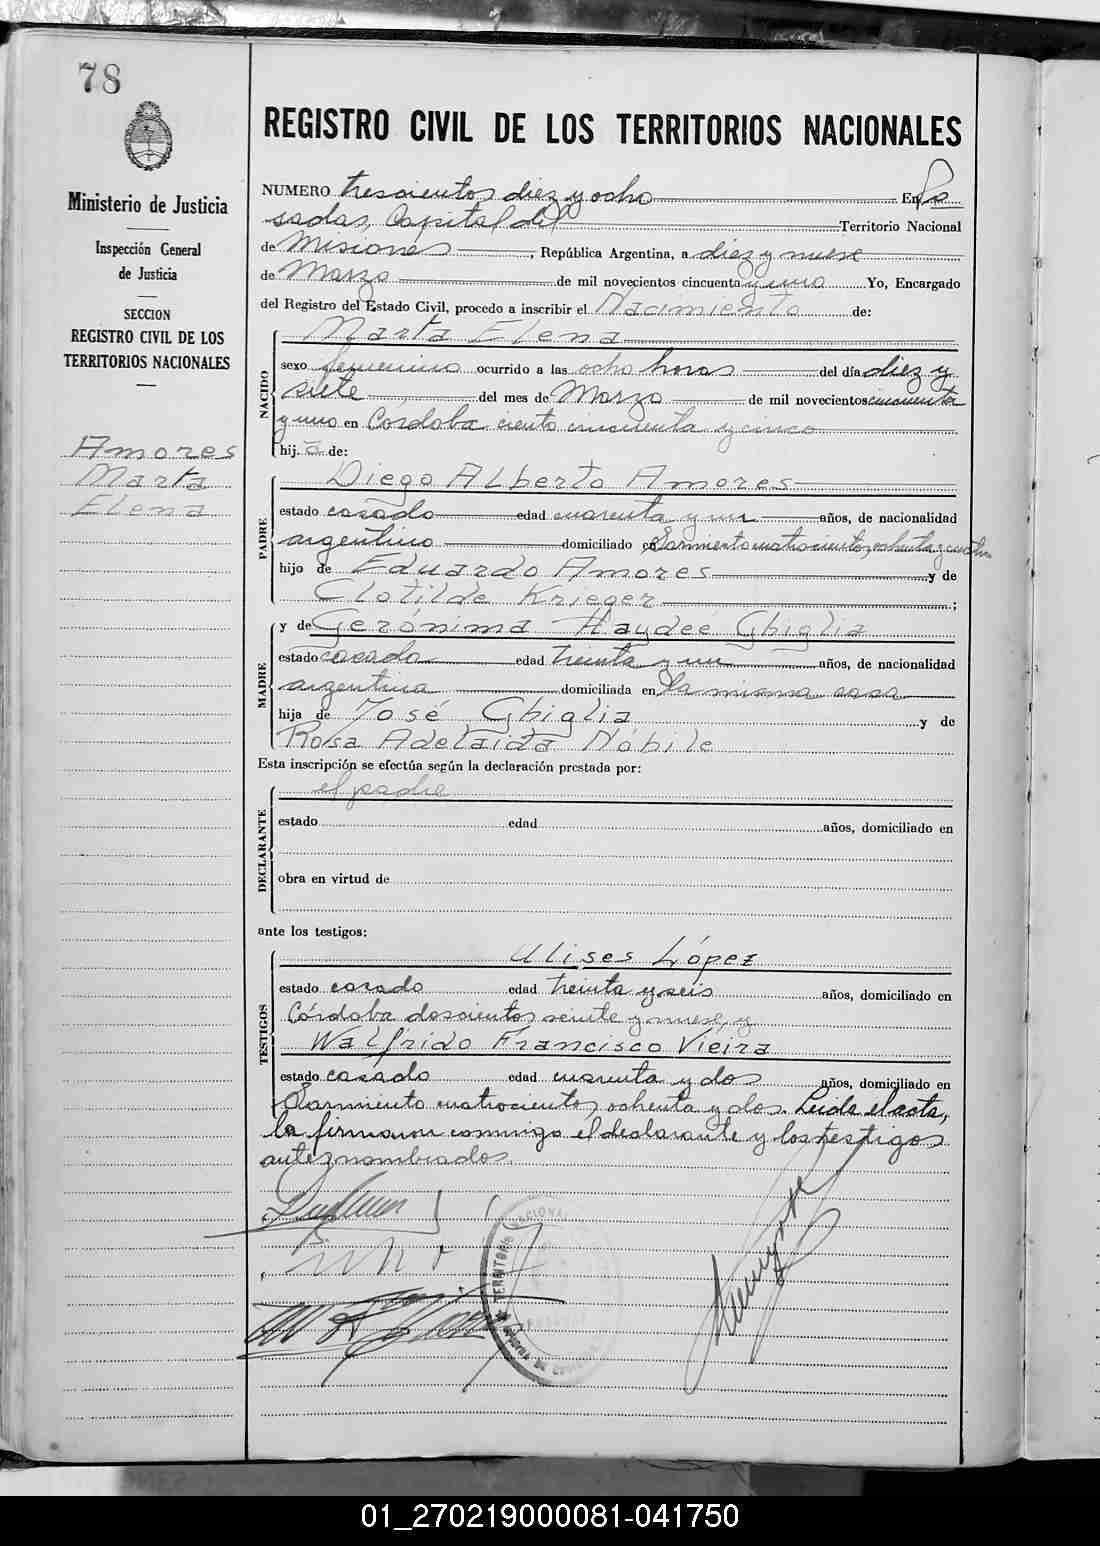 78
Ministerio de Justicia
Inspección General
de Justicia
SECCION
REGISTRO CIVIL DE LOS
TERRITORIOS NACIONALES
Amores
Marta
Elena
REGISTRO CIVIL DE LOS TERRITORIOS NACIONALES
NUMERO trescientos diez y ocho En Po
sadas, Capital del Territorio Nacional
de Misiones, República Argentina, a diez y nueve
de Marzo de mil novecientos cincuenta y uno Yo, Encargado
del Registro del Estado Civil, procedo a inscribir el Nacimiento de:
NACIDO
Marta Elena
sexo femenino ocurrido a las ocho horas del día diez y
siete del mes de Marzo de mil novecientos cincuenta
y uno en Córdoba ciento cincuenta y cinco
hij a de:
PADRE
Diego Alberto Amores
estado casado edad cuarenta y un años, de nacionalidad
argentino domiciliado en Sarmiento cuatrocientos ochenta y cuatro
hijo de Eduardo Amores y de
Clotilde Krieger;
MADRE
y de Gerónima Haydeé Ghiglia
estado casada edad treinta y un años, de nacionalidad
argentina domiciliada en la misma casa
hija de José Ghiglia y de
Rosa Adelaida Nóbile
Esta inscripción se efectúa según la declaración prestada por:
DECLARANTE
el padre
estado edad años, domiciliado en
obra en virtud de
ante los testigos:
TESTIGOS
Ulises López
estado casado edad treinta y seis años, domiciliado en
Córdoba doscientos veinte y nueve, y
Walfrido Francisco Vieira
estado casado edad cuarenta y dos años, domiciliado en
Sarmiento cuatrocientos ochenta y dos. Leida el acta,
la firmaron conmigo el declarante y los testigos
antes nombrados.
TERRITORIO NACIONAL
01_270219000081-041750